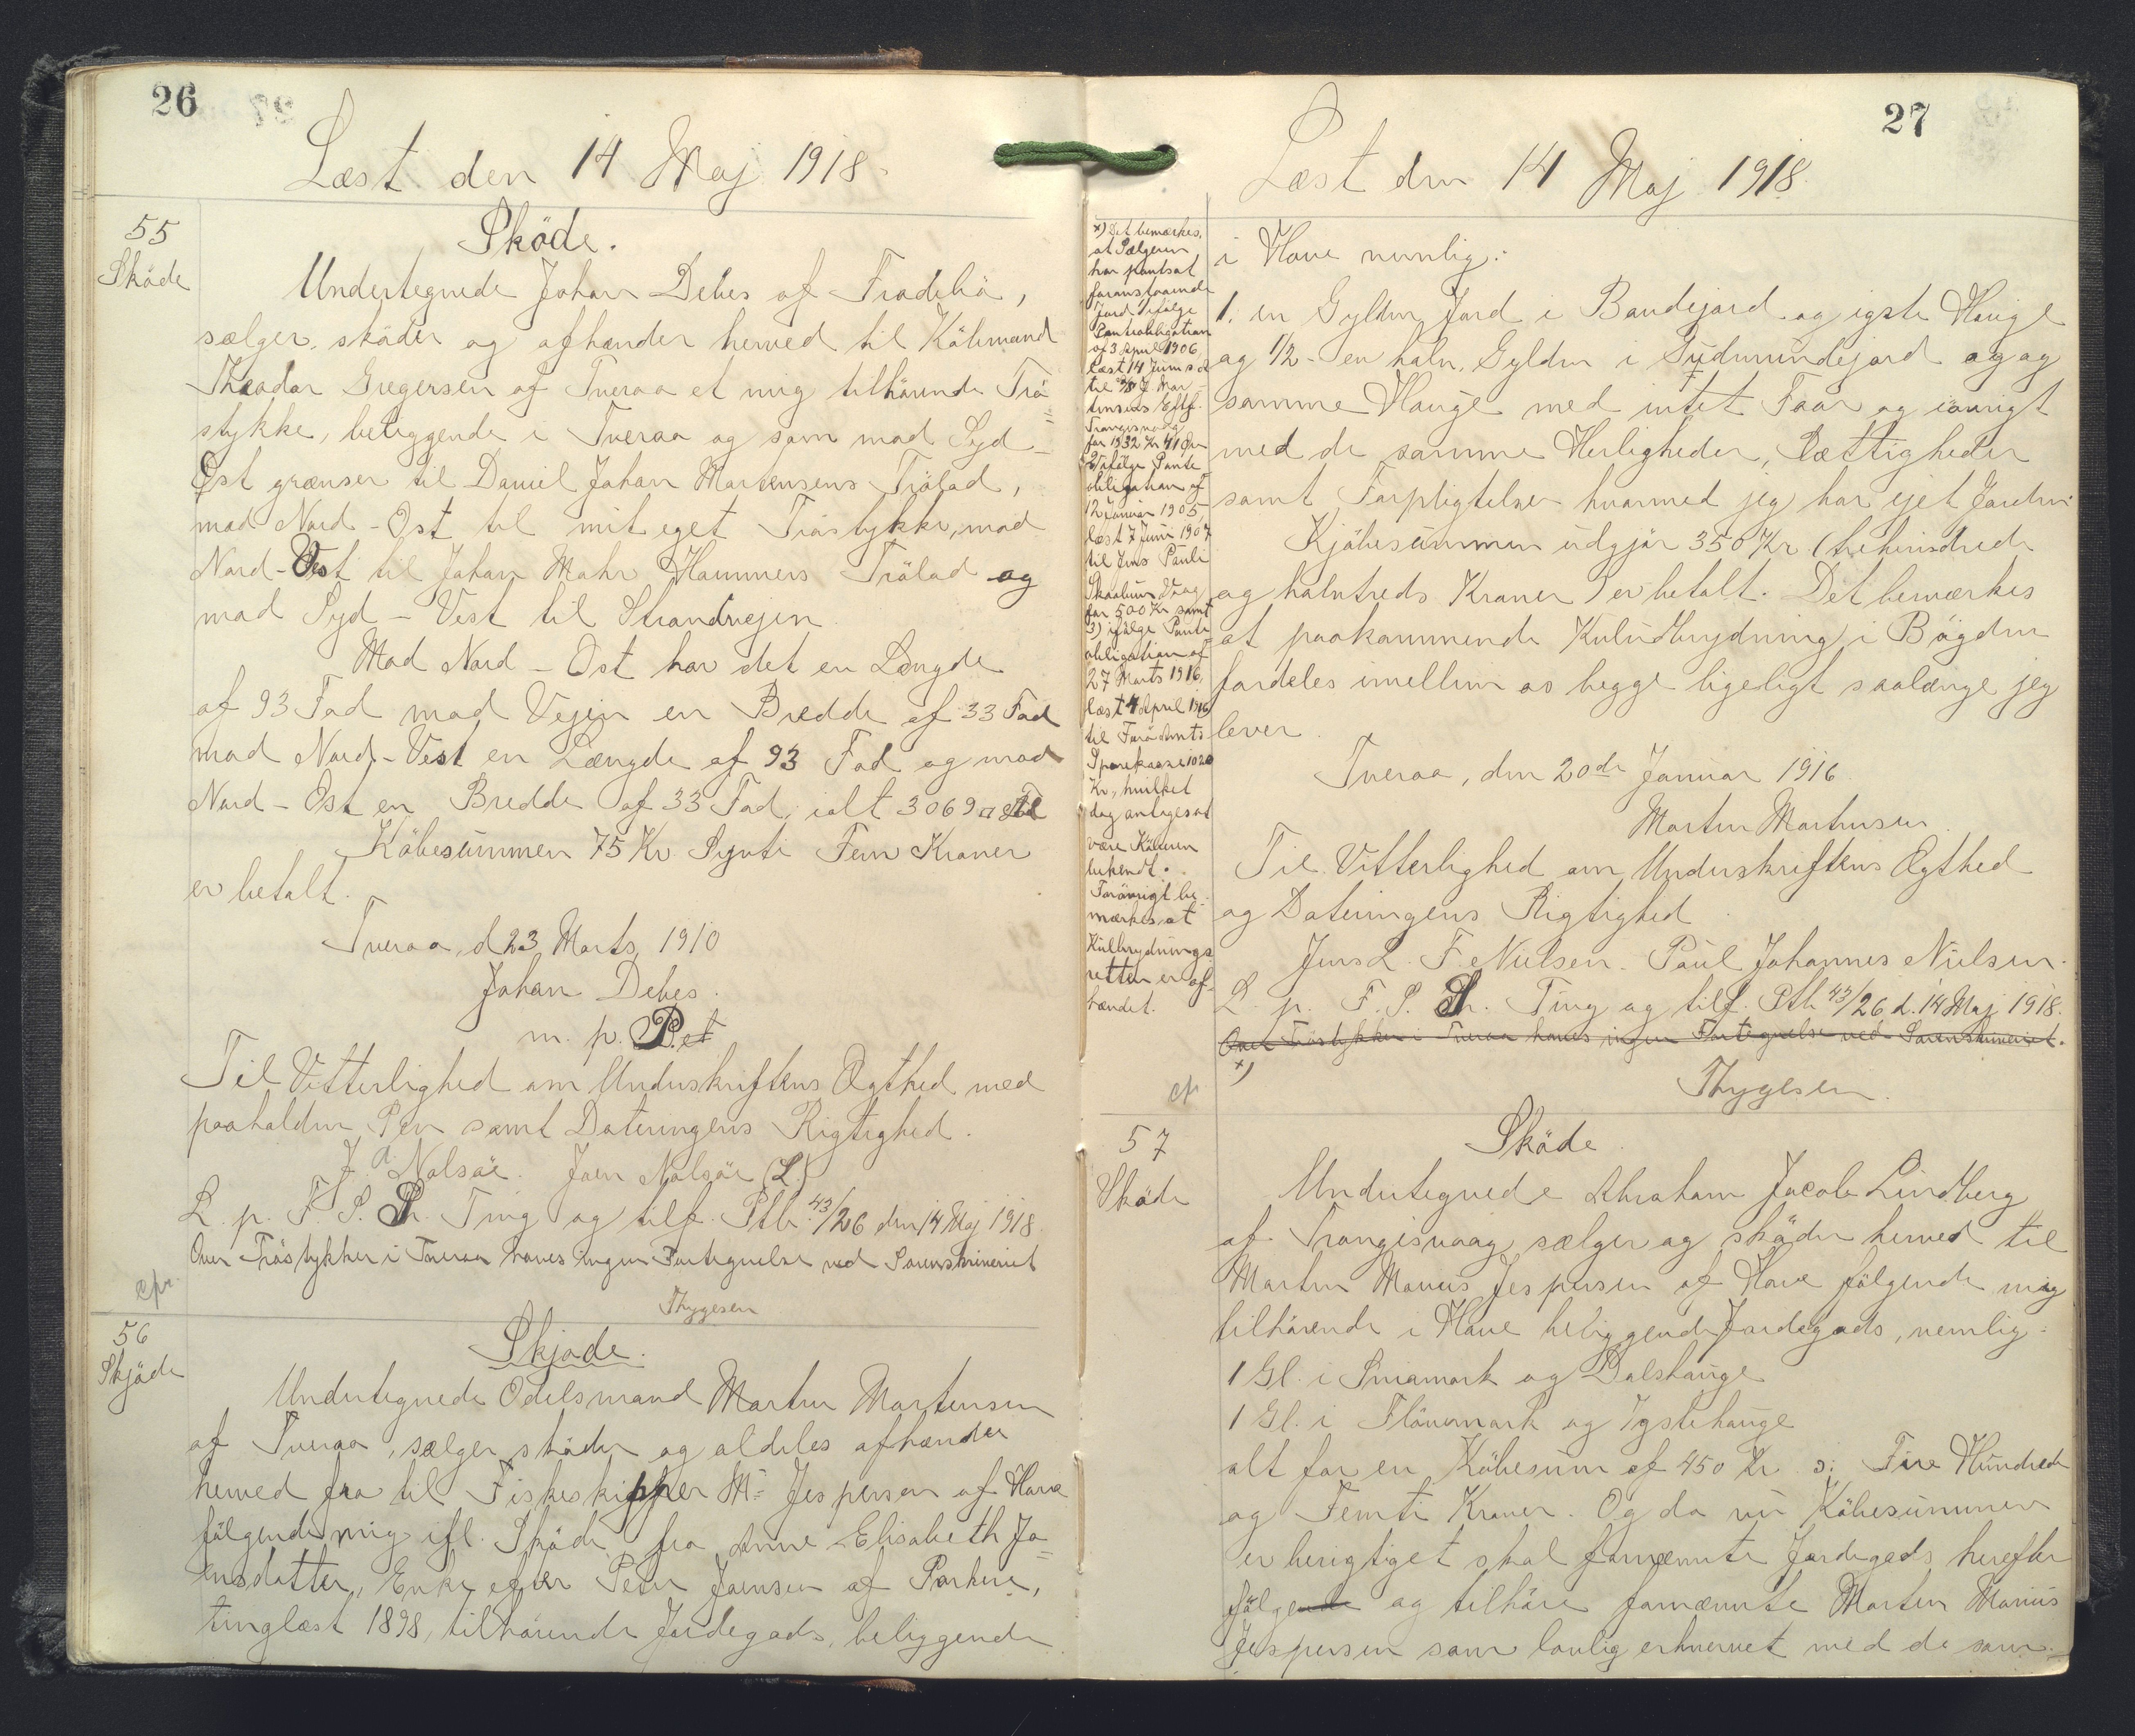 26
Læst den 14 Maj 1918.
55
Sköde
Sköde.
Undertegnede Johan Debes af Frodebö,
sælger, sköder og afhænder herved til Köbmand
Theodor Gregersen af Tveraa et mig tilhörende Trö=
stykke, beliggende i Tveraa og som mod Syd-
Öst grænser til Daniel Johan Mortensens Trölod,
mod Nord-Ost til mit eget Tröstykke, mod
Nord-Vest til Johan Mohr Hammers Trölod og
mod Syd-Vest til Strandvejen
Mod Nord-Ost har det en Længde
af 93 Fod mod Vejen en Bredde af 33 Fod
mod Nord-Vest en Længde af 93 Fod og mod
Nord-Ost en Bredde af 33 Fod, ialt 3069 □
Köbesummen 75 Kr Sytti Fem Kroner
er betalt.
Tveraa, d 23 Marts 1910
Johan Debes.
m. p. P.
Til Vitterlighed om Underskriftens Ægthed med
paaholden Pen samt Dateringens Rigtighed.
J. d. Nolsöe. Joen Nolsöe (L.)
L. p. F. S. Sr. Ting og tilf. Ptb. 43/26 den 14 Maj 1918
Over Tröstykker i Tveraa haves ingen Fortegnelse ved Sorenskriveriet
cpr.
Thygesen
56
Skjöde
Skjøde.
Undertegnede Odelsmand Morten Mortensen
af Tveraa, sælger, sköder og aldeles afhænder
herved fra til Fiskeskipper M= Jespersen af Hove
fölgende mig ifl. Sköde fra Anne Elisabeth Jo=
ensdatter, Enke efter Peter Joensen af Porkere,
tinglæst 1898, tilhörende Jordegods, beliggende
27
Læst den 14 Maj 1918.
x) Det bemærkes,
at Sælgeren
har pantsat
foranstaaende
Jord 1) ifölge
Panteobligation
af 3 April 1906,
læst 14 Juni s A
til J. Mor-
tensens Eftf.
Trangisvaag
for 1932 Kr 41 Öre
2) ifölge Pante
obligation af
12 Januar 1905,
læst 7 Juni 1907
til Jens Pauli
Skaalum Vaag
for 500 Kr samt
3) ifölge Pante
obligation af
27 Marts 1916,
læst 4 April 1916
til Færö Amts
Sparekasse 1020
Kr, hvilket
dog antages at
være Köberen
bekendt.
Forövrigt be-
mærkes, at
Kulbrydnings
retten er af-
hændet.
i Hove nemlig:
1. en Gylden Jord i Bondejord og igste Hauge
og 1/2 - en halv, Gylden i Sudmundejord og og
samme Hauge med intet Faar og iövrigt
med de samme Herligheder, Rettigheder
samt Forpligtelser hvormed jeg har ejet Jorden.
Kjöbesummen udgjör 350 Kr. (trehundrede
og halvtreds Kroner) er betalt. Det bemærkes
at paakommende Kuludbrydning i Bögden
fordeles imellem os begge ligeligt saalænge jeg
lever.
Tveraa, den 20de Januar 1916
Morten Mortensen
Til Vitterlighed om Underskriftens Ægthed
og Dateringens Rigtighed.
Jens L. F. Nielsen. Paul Johannes Nielsen.
L. p. F. S. Sr. Ting og tilf. Ptb 43/26, d. 14 Maj 1918.
Over Tröstykker i Tveraa haves ingen Fortegnelse ved Sorenskriveriet.
x)
cpr
Thygesen.
57
Sköde
Sköde.
Undertegnede Abraham Jacob Lindberg
af Trangisvaag sælger og sköder herved til
Morten Marius Jespersen af Hove fölgende mig
tilhörende i Hove beliggende Jordegods, nemlig:
1 Gl. i Sniamork og Dalshauge
1 Gl. i Flövemark og Igstehauge
alt for en Köbesum af 450 Kr. ɔ: Fire Hundrede
og Femti Kroner. Og da nu Köbesummen
er berigtiget skal fornævnte Jordegods herefter
fölgende og tilhöre fornævnte Morten Marius
Jespersen som lovlig erhvervet med de sam-